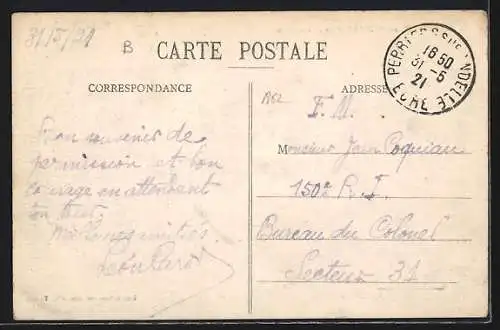 31/5/21
B
CARTE POSTALE
CORRESPONDANCE
ADRESSE
PERRIERS SUR ANDELLE
16 50
31 - 5
21
EURE
F. M.
Bon souvenir de
permission et bon
courage en attendant
ton tour.
Monsieur Jean Coquian
150e R. I.
Bureau du Colonel
Secteur 31